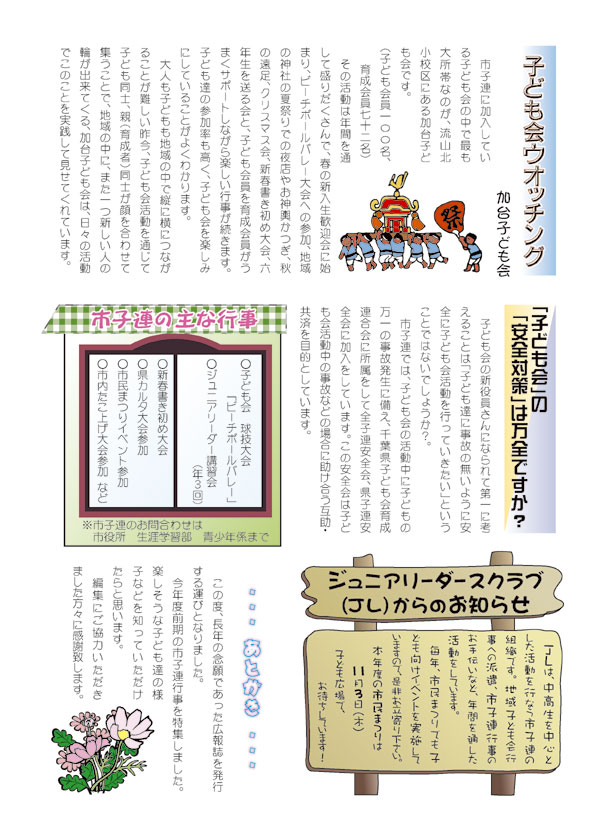 子ども会ウオッチング
加台子ども会
市子連に加入してい
る子ども会の中で最も
大所帯なのが、流山北
小校区にある加台子ど
も会です。
(子ども会員一〇〇名、
育成会員七十二名)
その活動は年間を通
して盛りだくさんで、春の新入生歓迎会に始
まり、ビーチボールバレー大会への参加、地域
の神社の夏祭りでの夜店やお神輿かつぎ、秋
の遠足、クリスマス会、新春書き初め大会、六
年生を送る会と、子ども会員を育成会員がう
まくサポートしながら楽しい行事が続きます。
子ども達の参加率も高く、子ども会を楽しみ
にしていることがよくわかります。
大人も子どもも地域の中で縦に横につなが
ることが難しい昨今、子ども会活動を通じて
子ども同士、親(育成者)同士が顔を合わせて
集うことで、地域の中に、また一つ新しい人の
輪が出来てくる、加台子ども会は、日々の活動
でこのことを実践して見せてくれています。
祭
「子ども会」の
「安全対策」は万全ですか?
子ども会の新役員さんになられて第一に考
えることは「子ども達に事故の無いように安
全に子ども会活動を行っていきたい」という
ことではないでしょうか?。
市子連では、子ども会の活動中に子どもの
万一の事故発生に備え、千葉県子ども会育成
連合会に所属をして全子連安全会、県子連安
全会に加入をしています。この安全会は子ど
も会活動中の事故などの場合に助け合う互助・
共済を目的としています。
市子連の主な行事
○子ども会 球技大会
「ビーチボールバレー」
○ジュニアリーダー講習会
(年3回)
○新春書き初め大会
○県カルタ大会参加
○市民まつりイベント参加
○市内たこ上げ大会参加 など
※市子連のお問合わせは
市役所 生涯学習部 青少年係まで
ジュニアリーダースクラブ
(JL)からのお知らせ
JLは、中高生を中心と
した活動を行なう市子連の
組織です。地域子ども会行
事への派遣、市子連行事の
お手伝いなど、年間を通した
活動をしています。
毎年、市民まつりでも子
ども向けイベントを実施して
いますので、是非お立寄り下さい。
本年度の市民まつりは
11月3日(木)
子ども広場で、
お待ちしています!
・・・ あとがき ・・・
この度、長年の念願であった広報誌を発行
する運びとなりました。
今年度前期の市子連行事を特集しました。
楽しそうな子ども達の様
子などを知っていただけ
たらと思います。
編集にご協力いただき
ました方々に感謝致します。